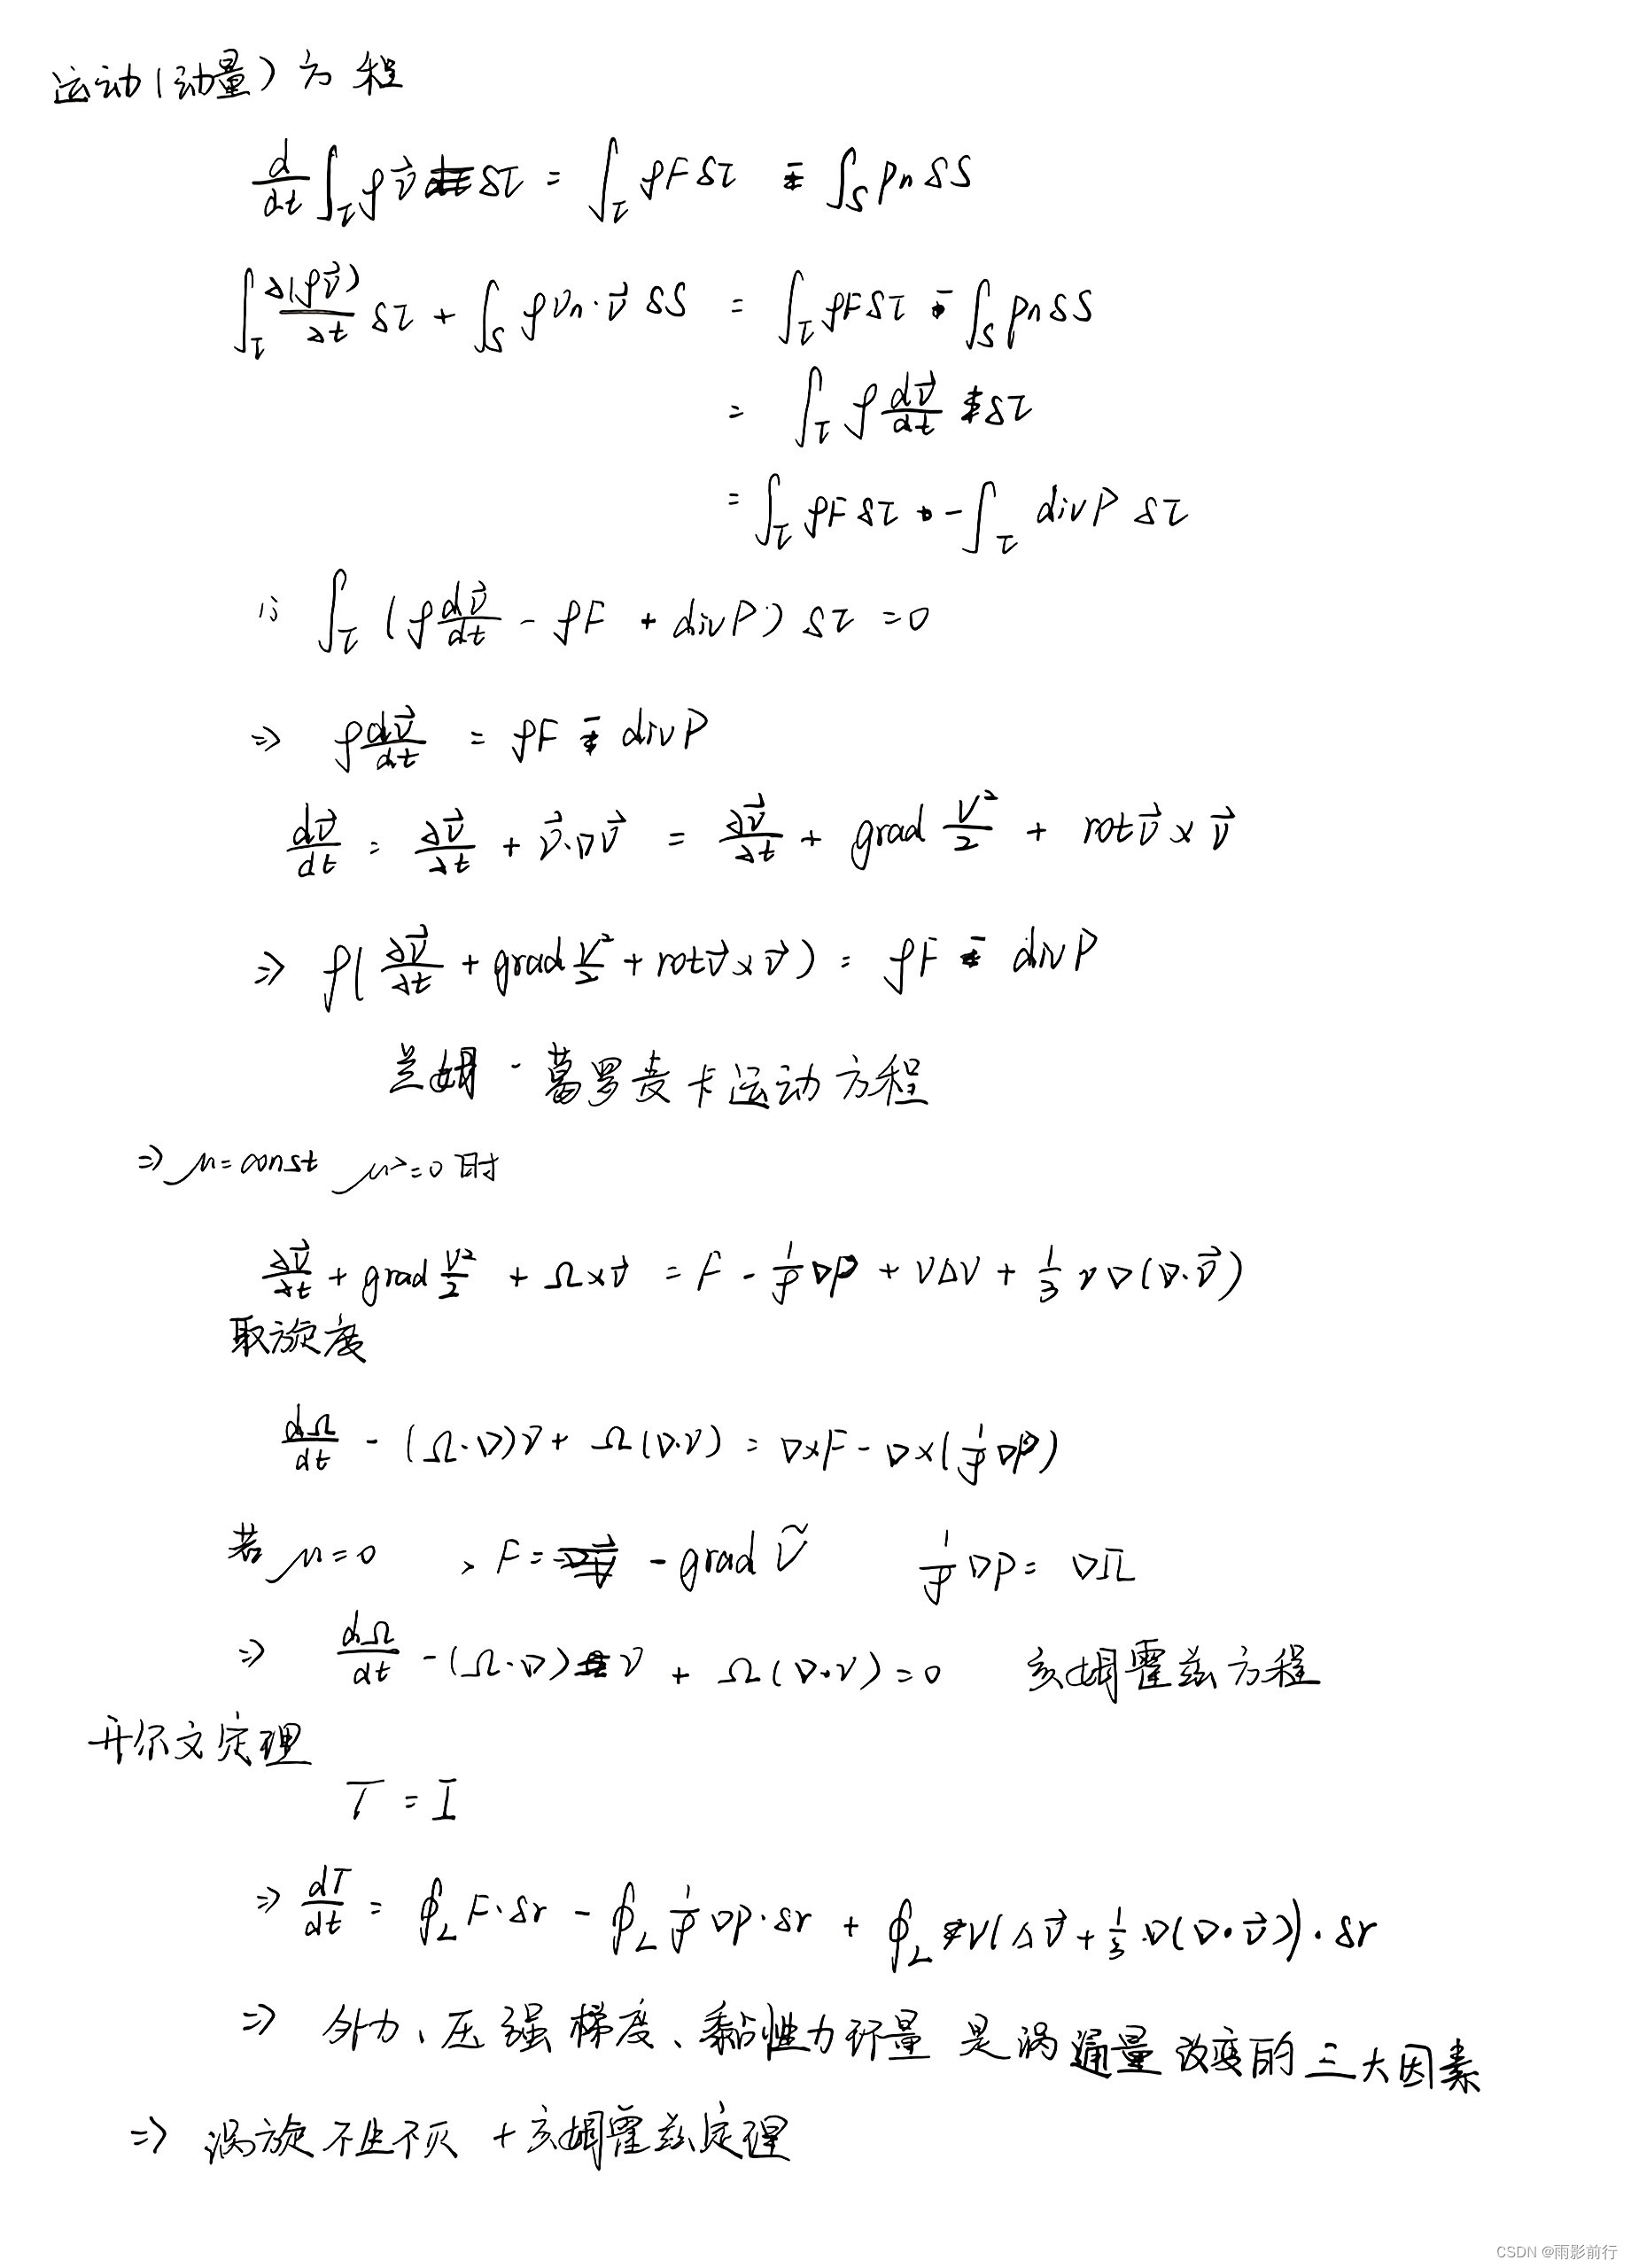 运动(动量)方程
d/dt ∫_τ ρv⃗ δτ = ∫_τ ρF δτ - ∫_S pn δS
∫_τ ∂(ρv⃗)/∂t δτ + ∫_S ρvn·v⃗ δS = ∫_τ ρF δτ - ∫_S pn δS
= ∫_τ ρ dv⃗/dt δτ
= ∫_τ ρF δτ - ∫_τ divP δτ
∫_τ (ρ dv⃗/dt - ρF + divP) δτ = 0
⇒ ρ dv⃗/dt = ρF - divP
dv⃗/dt = ∂v⃗/∂t + v⃗·∇v⃗ = ∂v⃗/∂t + grad V²/2 + rot v⃗ × v⃗
⇒ ρ(∂v⃗/∂t + grad V²/2 + rot v⃗ × v⃗) = ρF - divP
兰姆-葛罗麦卡运动方程
⇒ μ=const μ'=0时
∂v⃗/∂t + grad V²/2 + Ω×v⃗ = F - 1/ρ ∇p + ν∆V + 1/3 ν∇(∇·v⃗)
取旋度
dΩ/dt - (Ω·∇)v + Ω(∇·v) = ∇×F - ∇×(1/ρ ∇p)
若 μ=0 、F = - grad Ṽ 1/ρ ∇p = ∇Π
⇒ dΩ/dt - (Ω·∇)v + Ω(∇·v) = 0 亥姆霍兹方程
开尔文定理
T = I
⇒ dT/dt = ∮_L F·δr - ∮_L 1/ρ ∇p·δr + ∮_L ν(∆v⃗ + 1/3 ∇(∇·v⃗))·δr
⇒ 外力、压强梯度、黏性力环量是涡通量改变的三大因素
⇒ 涡旋不生不灭 + 亥姆霍兹定理
CSDN @雨影前行